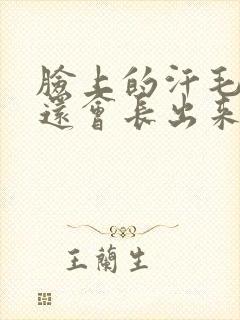 臉上的汗毛
還會長出來
王蘭生